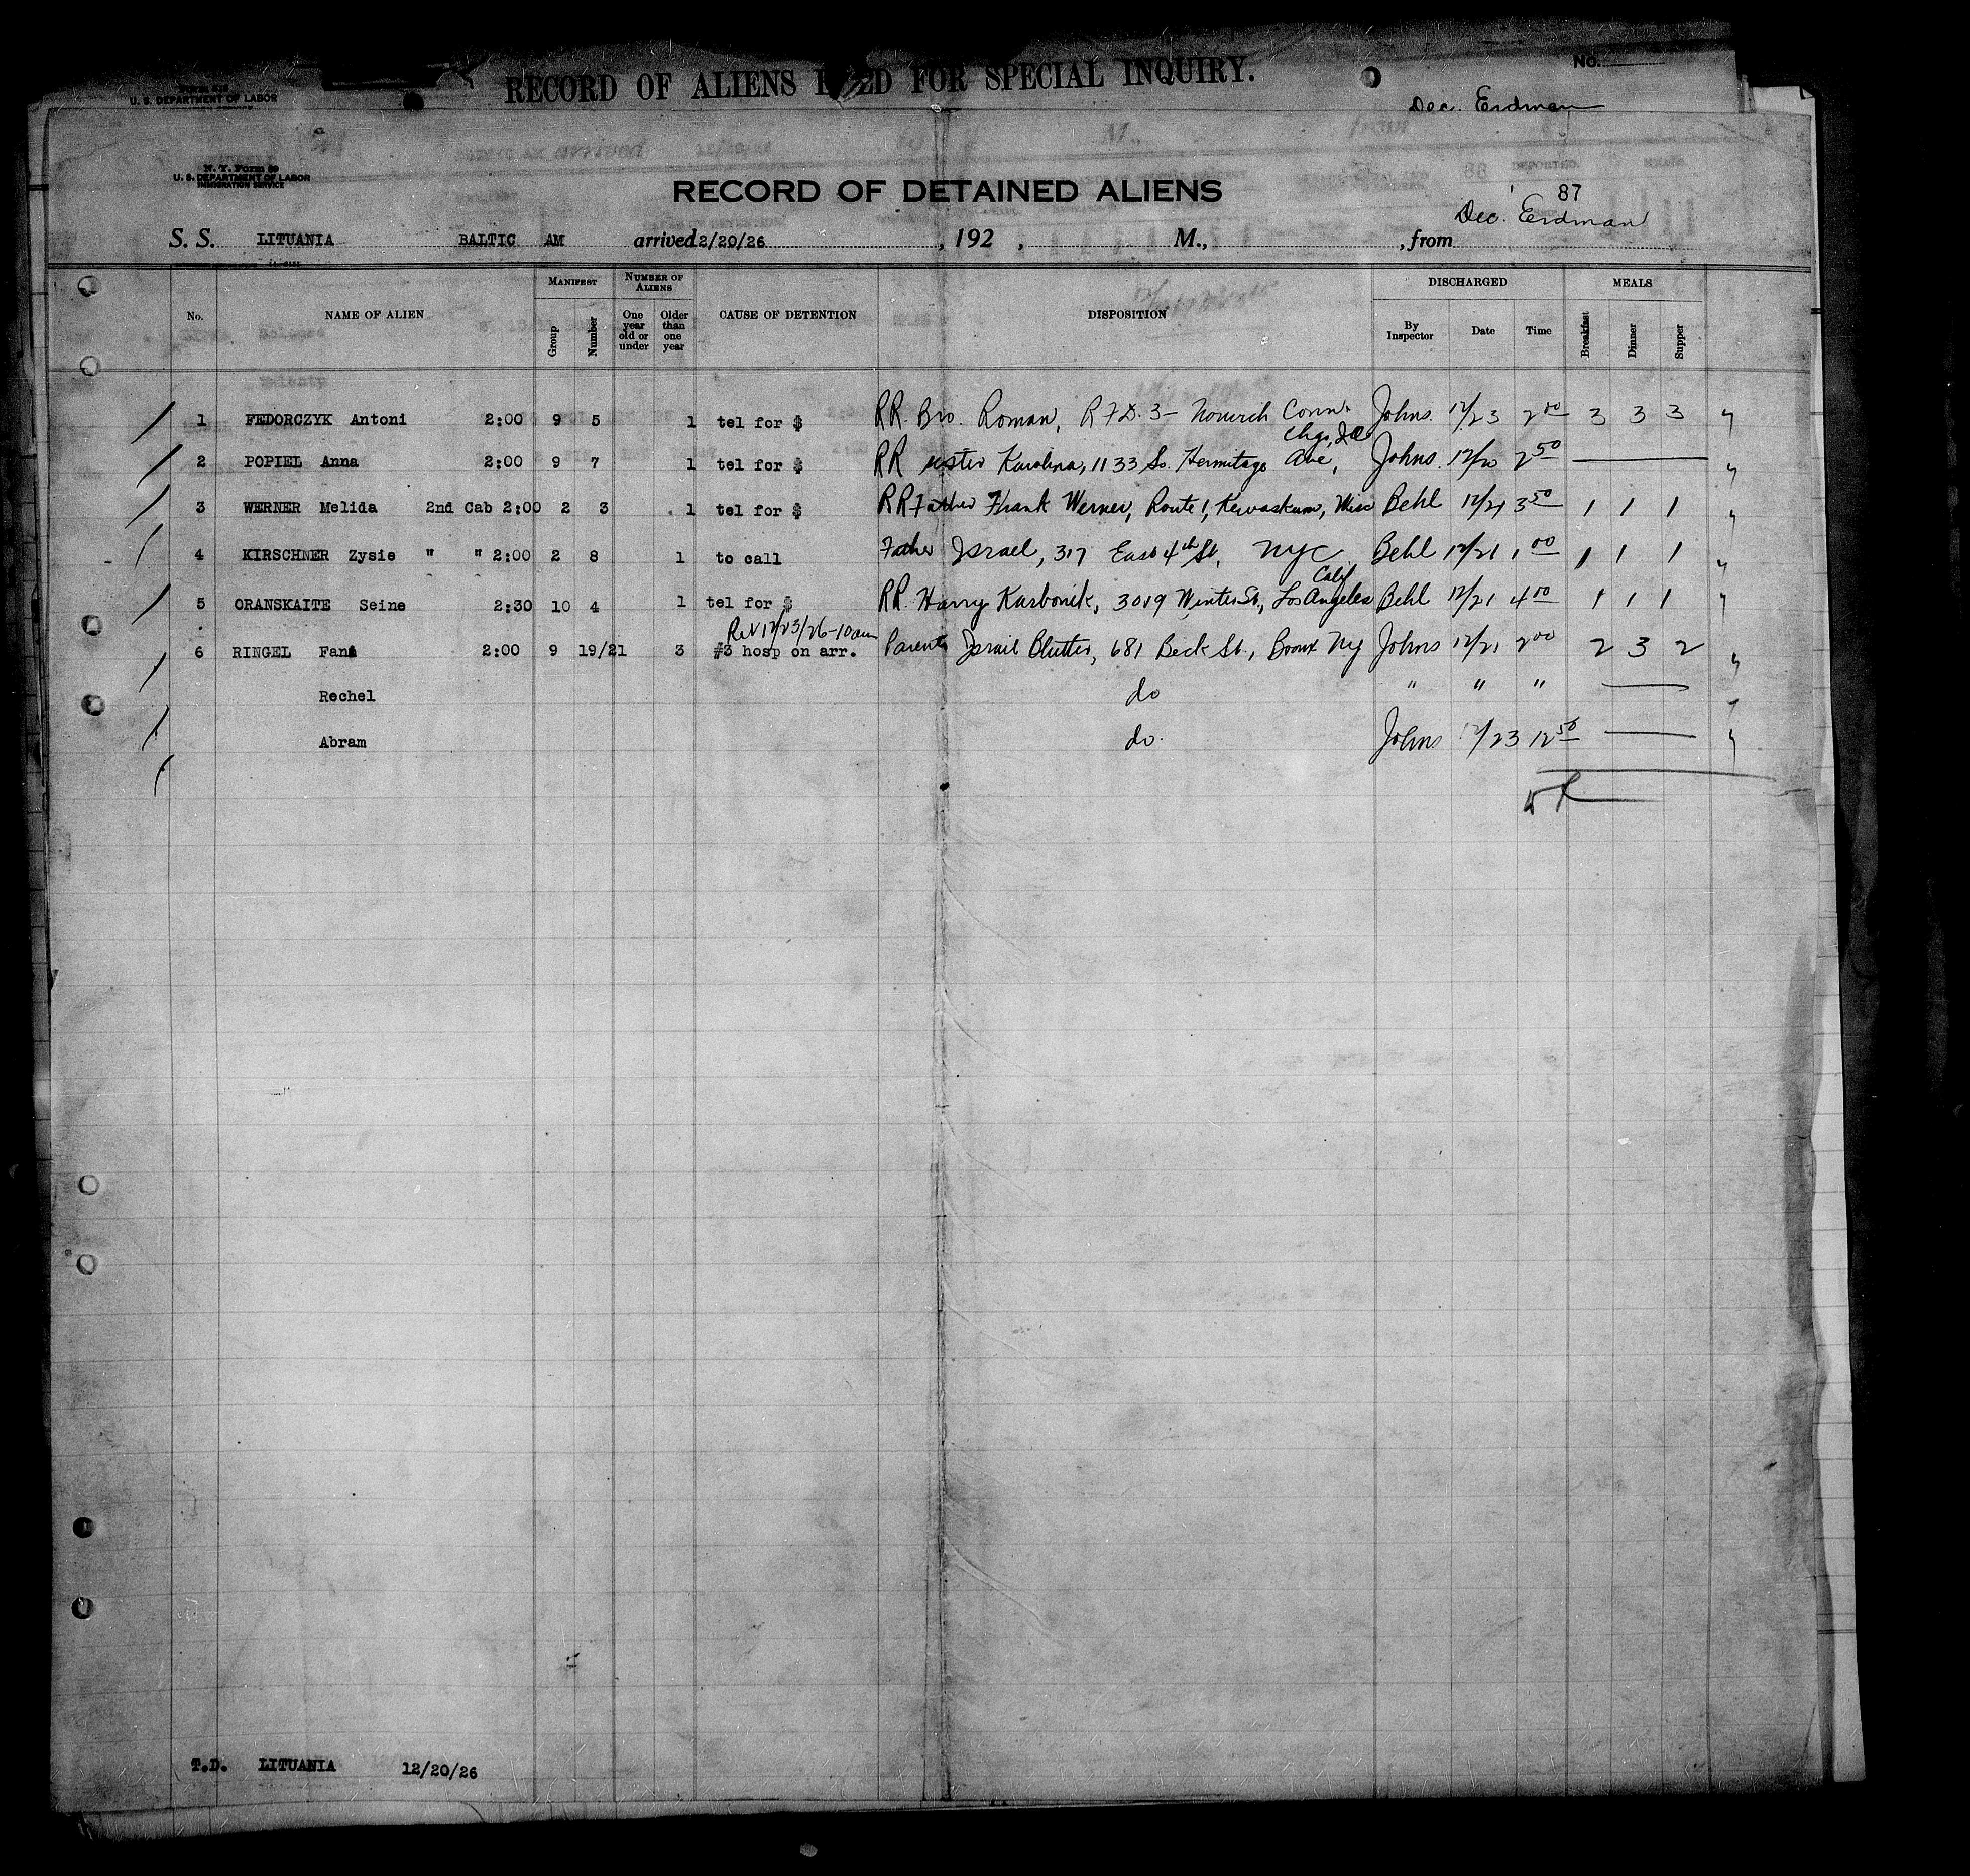 Form 518
U. S. DEPARTMENT OF LABOR
RECORD OF ALIENS FOR SPECIAL INQUIRY.
No.
Dec. Erdman
N. Y. Form 89
U. S. DEPARTMENT OF LABOR
IMMIGRATION SERVICE
RECORD OF DETAINED ALIENS
87
Dec. Erdman
S. S. LITUANIA BALTIC AM arrived 12/20/26, 192 , M., , from
No. NAME OF ALIEN MANIFEST Group Number NUMBER OF ALIENS One year old or under Older than one year CAUSE OF DETENTION DISPOSITION DISCHARGED By Inspector Date Time MEALS Breakfast Dinner Supper
1 FEDORCZYK Antoni 2:00 9 5 1 tel for $ RR. Bro. Roman, R F D. 3 - Norwich Conn. Johns. 12/23 2 00 3 3 3
2 POPIEL Anna 2:00 9 7 1 tel for $ RR sister Karolina, 1133 So. Hermitage Ave, Chgo, Ill Johns. 12/20 2 50
3 WERNER Melida 2nd Cab 2:00 2 3 1 tel for $ RR Father Frank Werner, Route 1, Kewaskum, Wisc Behl 12/21 3 50 1 1 1
4 KIRSCHNER Zysie " " 2:00 2 8 1 to call Father Israel, 317 East 4th St, NYC Behl 12/21 1 00 1 1 1
5 ORANSKAITE Seine 2:30 10 4 1 tel for $ RR. Harry Karbonik, 3019 Winter St., Los Angeles Calif Behl 12/21 4 00 1 1 1
Rel 12/23/26-10am
6 RINGEL Fani 2:00 9 19/21 3 #3 hosp on arr. Parents Israil Blutter, 681 Beck St., Bronx NY Johns 12/21 2 00 2 3 2
Rechel do " " "
Abram do. Johns 12/23 12 50
T.D. LITUANIA 12/20/26